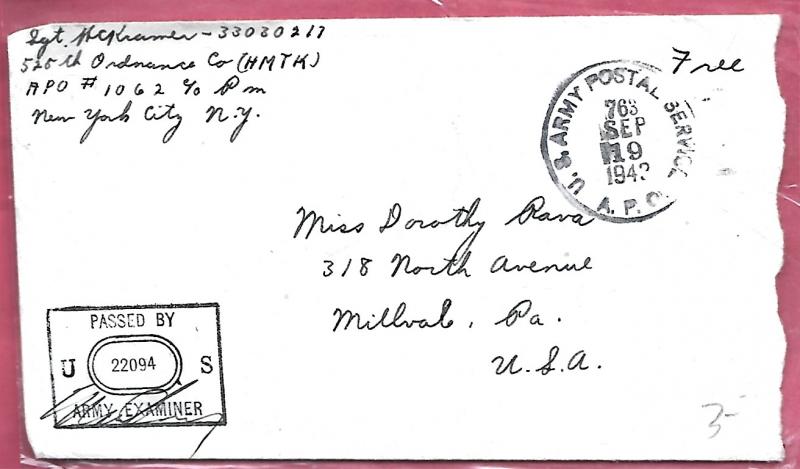 Sgt. H C Kramer - 33030217
525th Ordnance Co (HMTK)
APO # 1062 c/o Pm
New York City N.Y.
Free
U.S. ARMY POSTAL SERVICE
763
SEP
19
1943
A.P.O.
Miss Dorothy Rava
318 North Avenue
Millvale, Pa.
U.S.A.
PASSED BY
U 22094 S
ARMY EXAMINER
3-